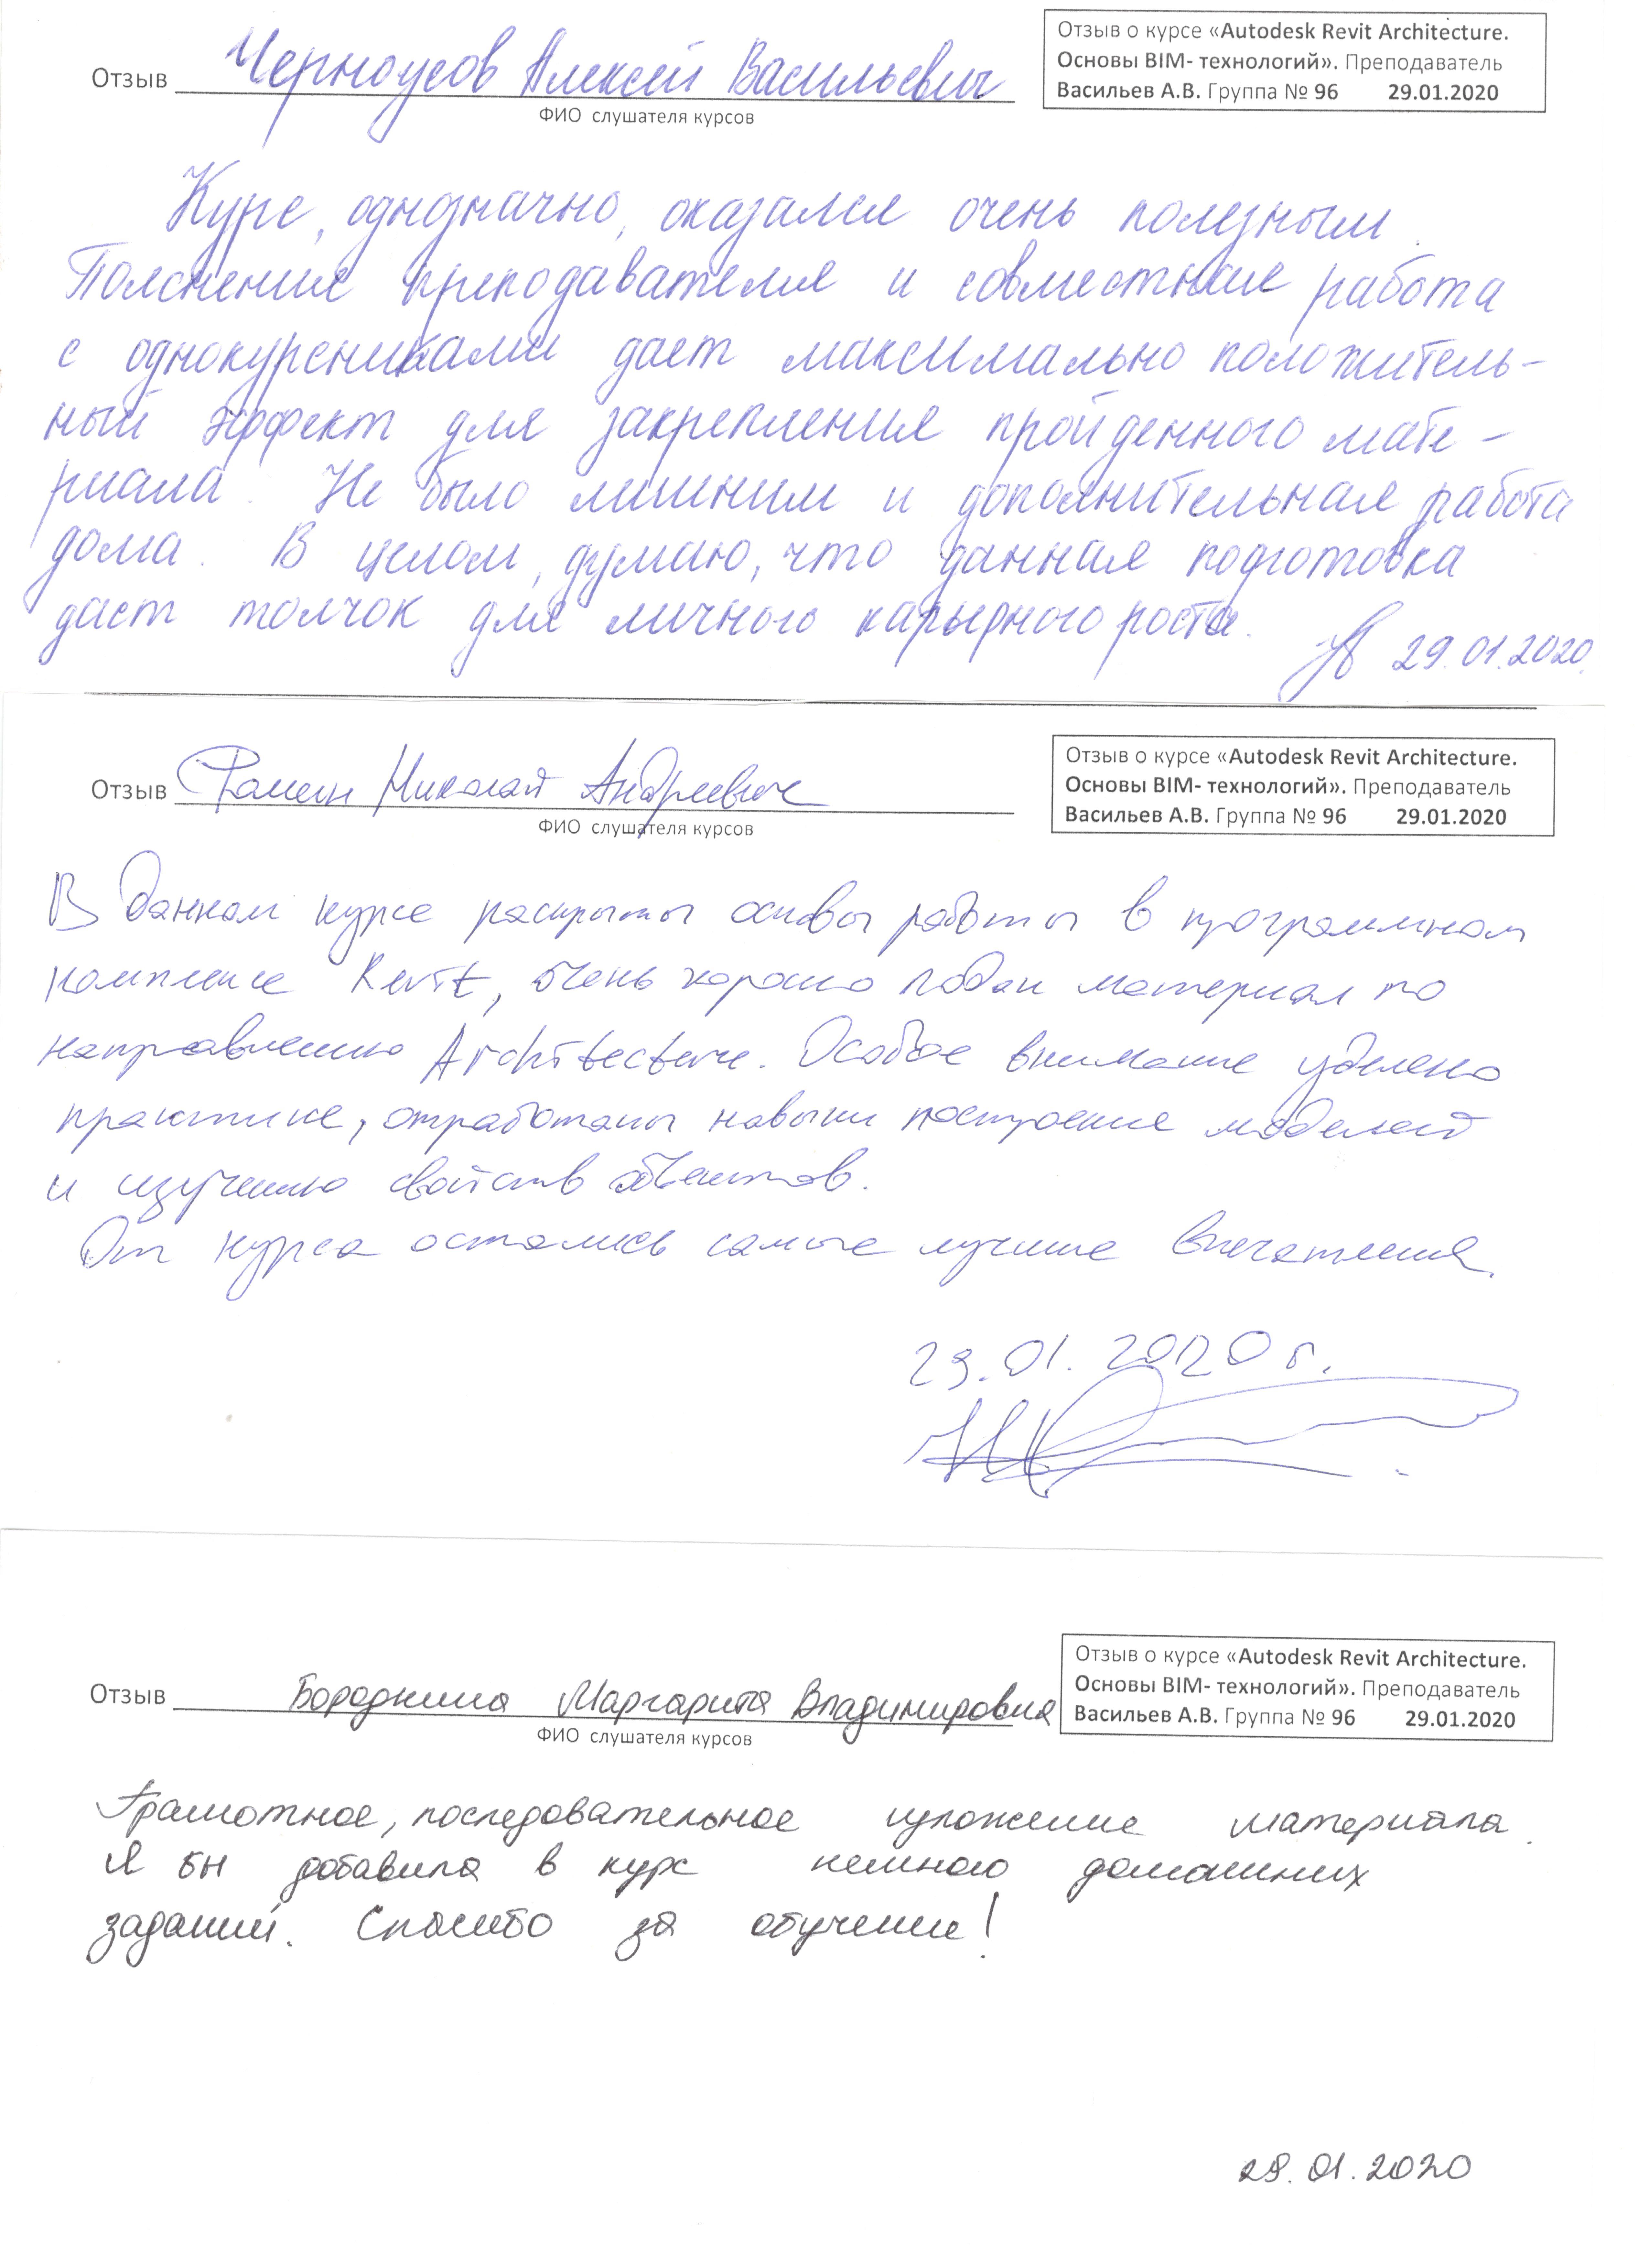 Отзыв Черноусов Алексей Васильевич
ФИО слушателя курсов
Отзыв о курсе «Autodesk Revit Architecture.
Основы BIM- технологий». Преподаватель
Васильев А.В. Группа № 96 29.01.2020
Курс, однозначно, оказался очень полезным.
Пояснение преподавателя и совместная работа
с однокурсниками дает максимально положитель-
ный эффект для закрепления пройденного мате-
риала. Не было лишним и дополнительная работа
дома. В целом, думаю, что данная подготовка
даст толчок для личного карьерного роста.
29.01.2020
Отзыв Николай Андреевич
ФИО слушателя курсов
Отзыв о курсе «Autodesk Revit Architecture.
Основы BIM- технологий». Преподаватель
Васильев А.В. Группа № 96 29.01.2020
В данном курсе раскрыты основы работы в программном
комплексе Revit, очень хорошо подан материал по
направлению Architecture. Особое внимание уделено
практике, отработаны навыки построение моделей
и изучению свойств объектов.
От курса остались самые лучшие впечатления.
29.01.2020 г.
Отзыв Бородкина Маргарита Владимировна
ФИО слушателя курсов
Отзыв о курсе «Autodesk Revit Architecture.
Основы BIM- технологий». Преподаватель
Васильев А.В. Группа № 96 29.01.2020
Грамотное, последовательное изложение материала.
Я бы добавила в курс немного домашних
заданий. Спасибо за обучение!
29.01.2020